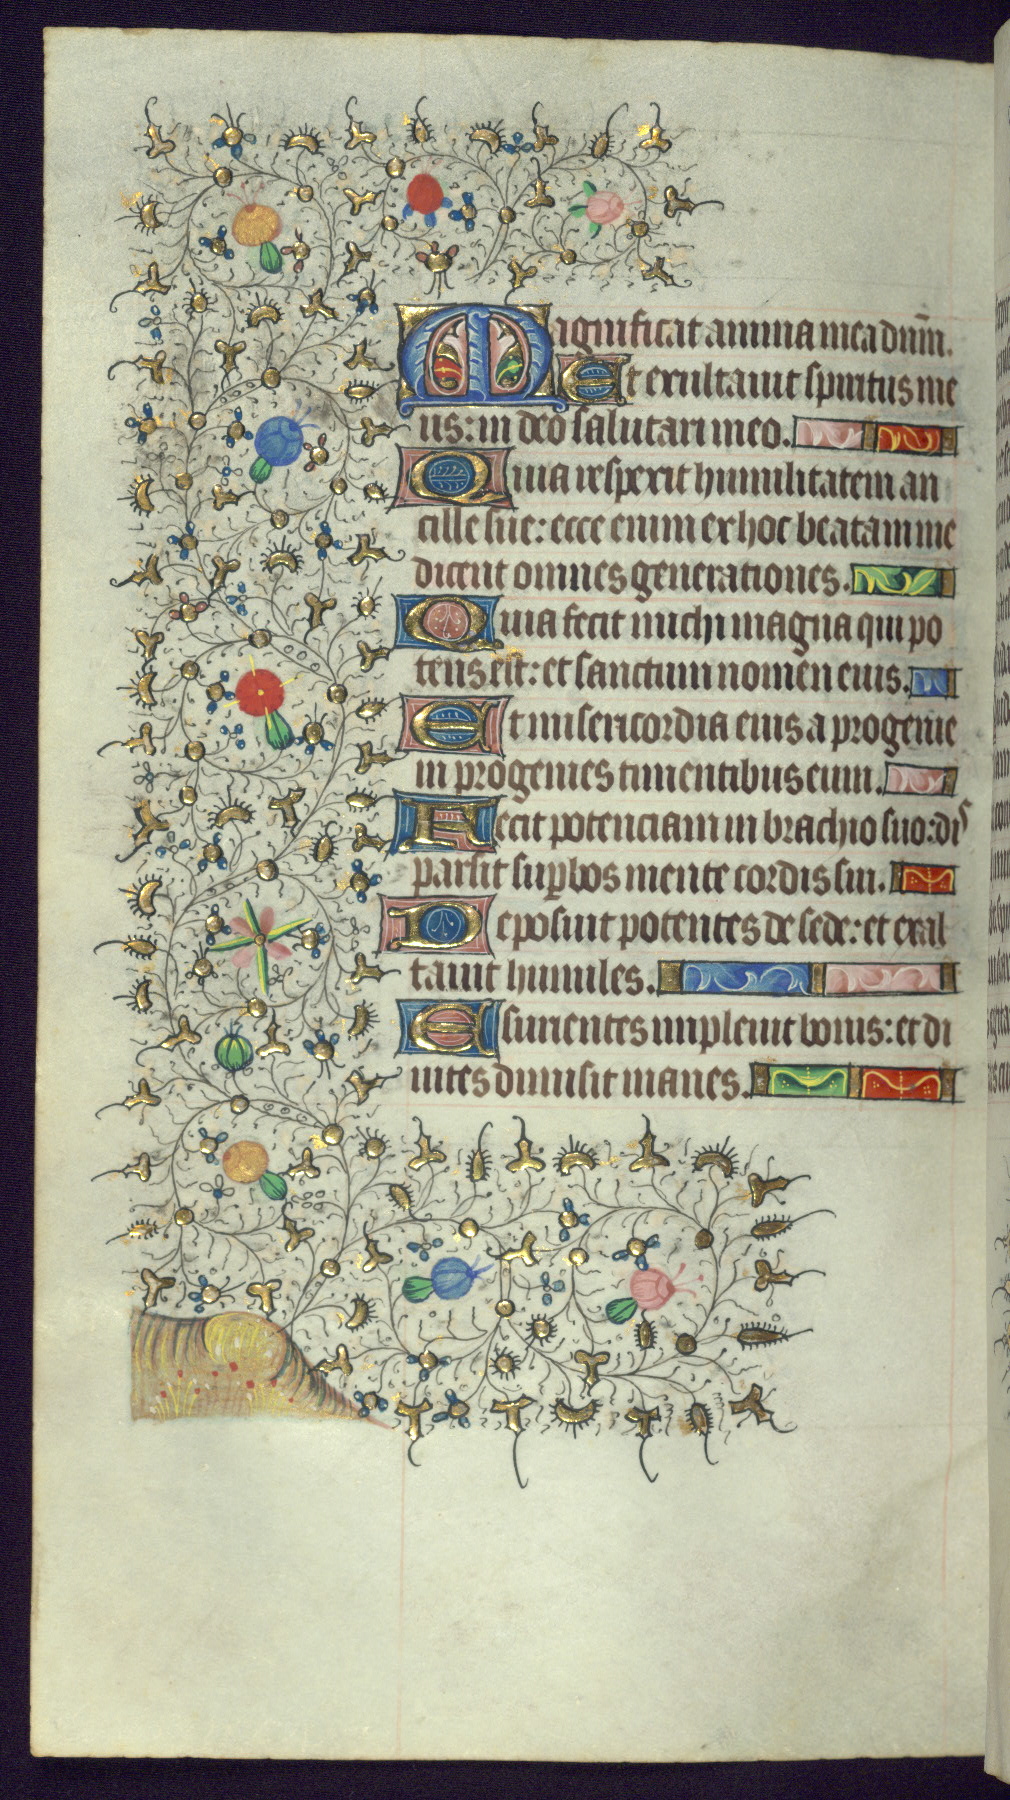 Magnificat anima mea dn̄m.
Et exultauit spiritus me
us: in deo salutari meo.
Quia respexit humilitatem an
cille sue: ecce enim ex hoc beatam me
dicent omnes generationes.
Quia fecit michi magna qui po
tens est: et sanctum nomen eius.
Et misericordia eius a progenie
in progenies timentibus eum.
Fecit potenciam in brachio suo: dis
parsit suꝑbos mente cordis sui.
Deposuit potentes de sede: et exal
tauit humiles.
Esurientes impleuit bonis: et di
uites dimisit inanes.